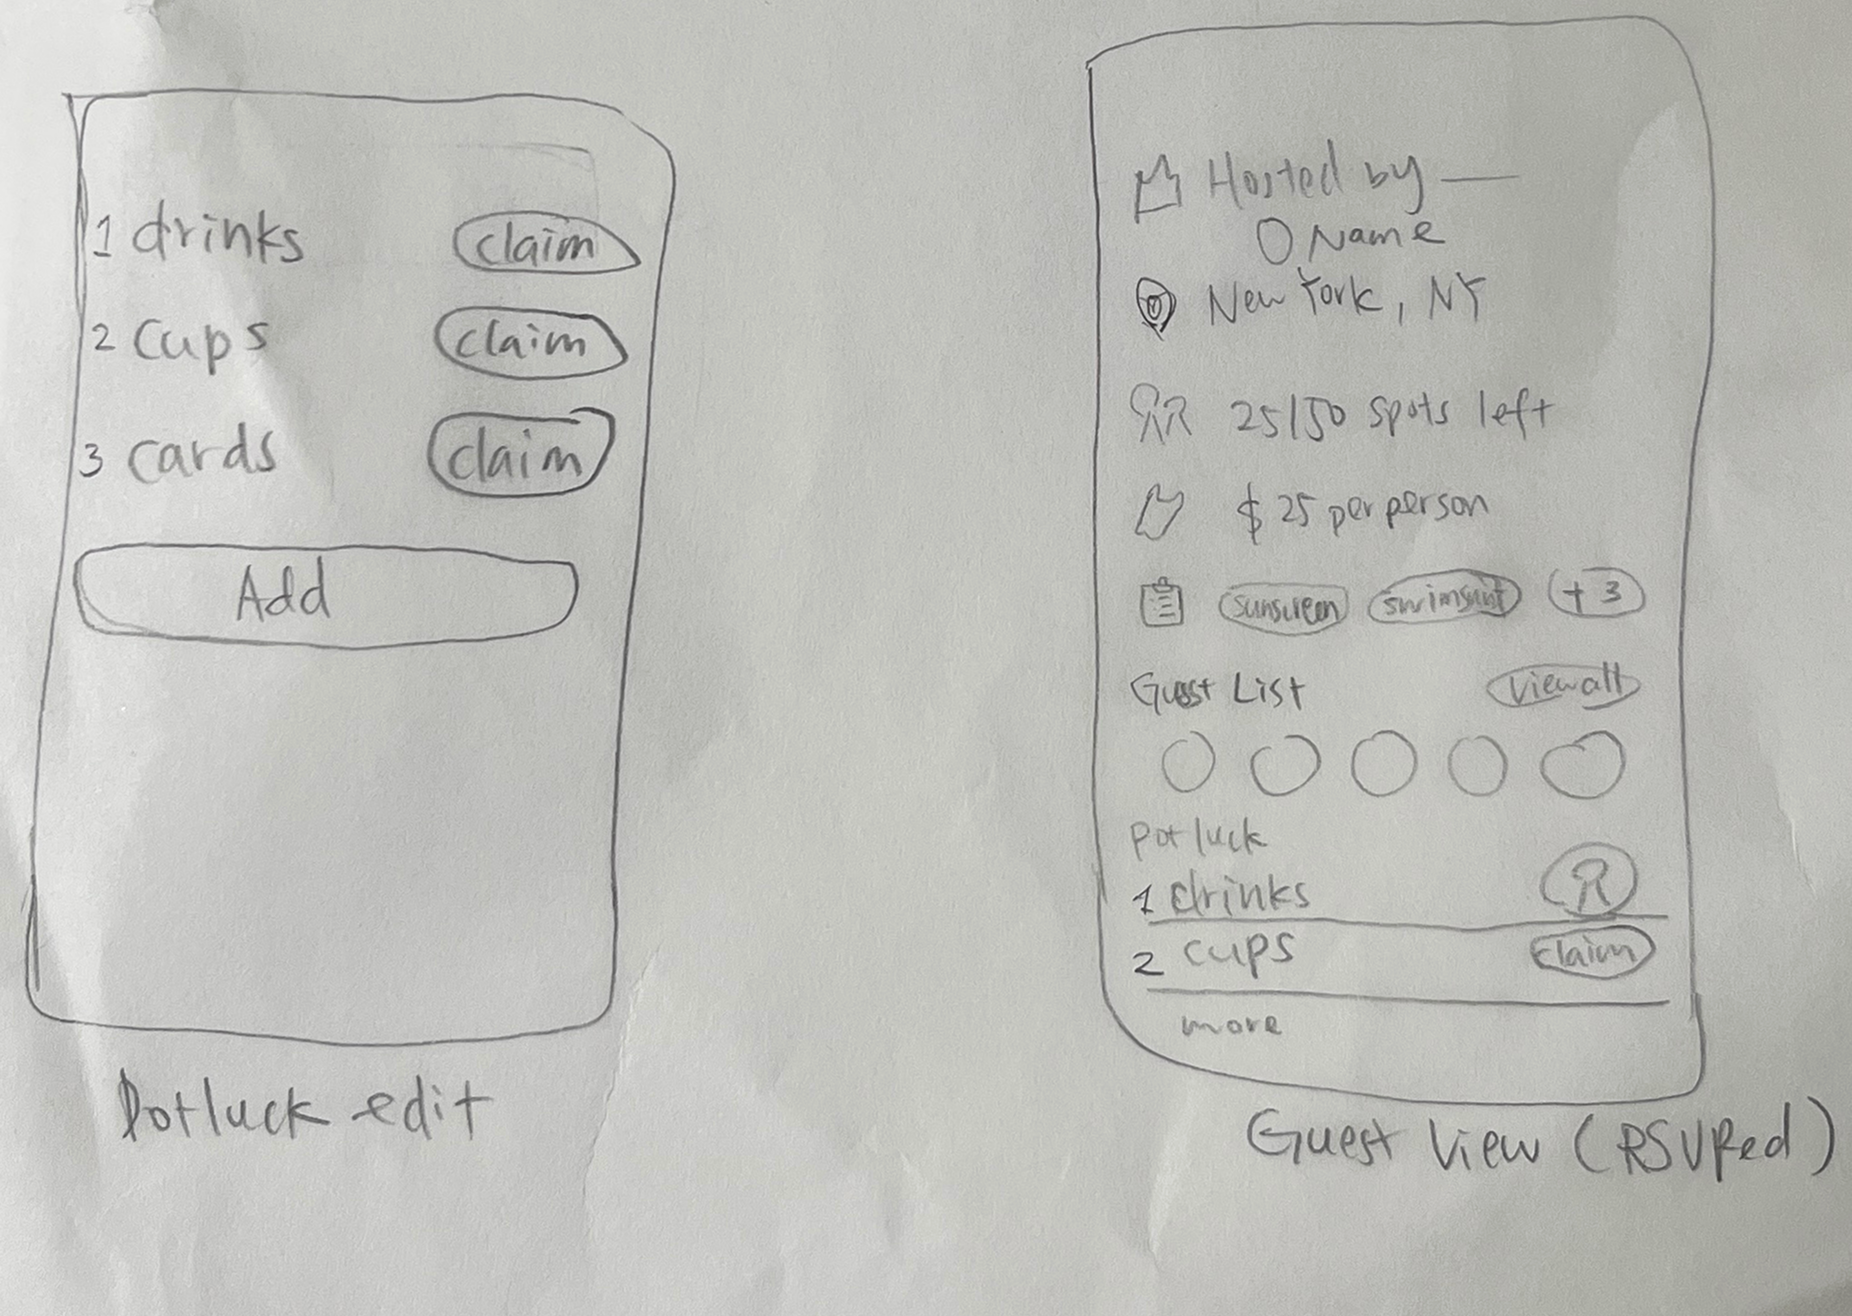 1 drinks claim
2 cups claim
3 cards claim
Add
Potluck edit
Hosted by
Name
New York, NY
25/50 spots left
$25 per person
sunscreen swimsuit +3
Guest List View all
Potluck
1 drinks
2 cups claim
more
Guest View (RSVPed)